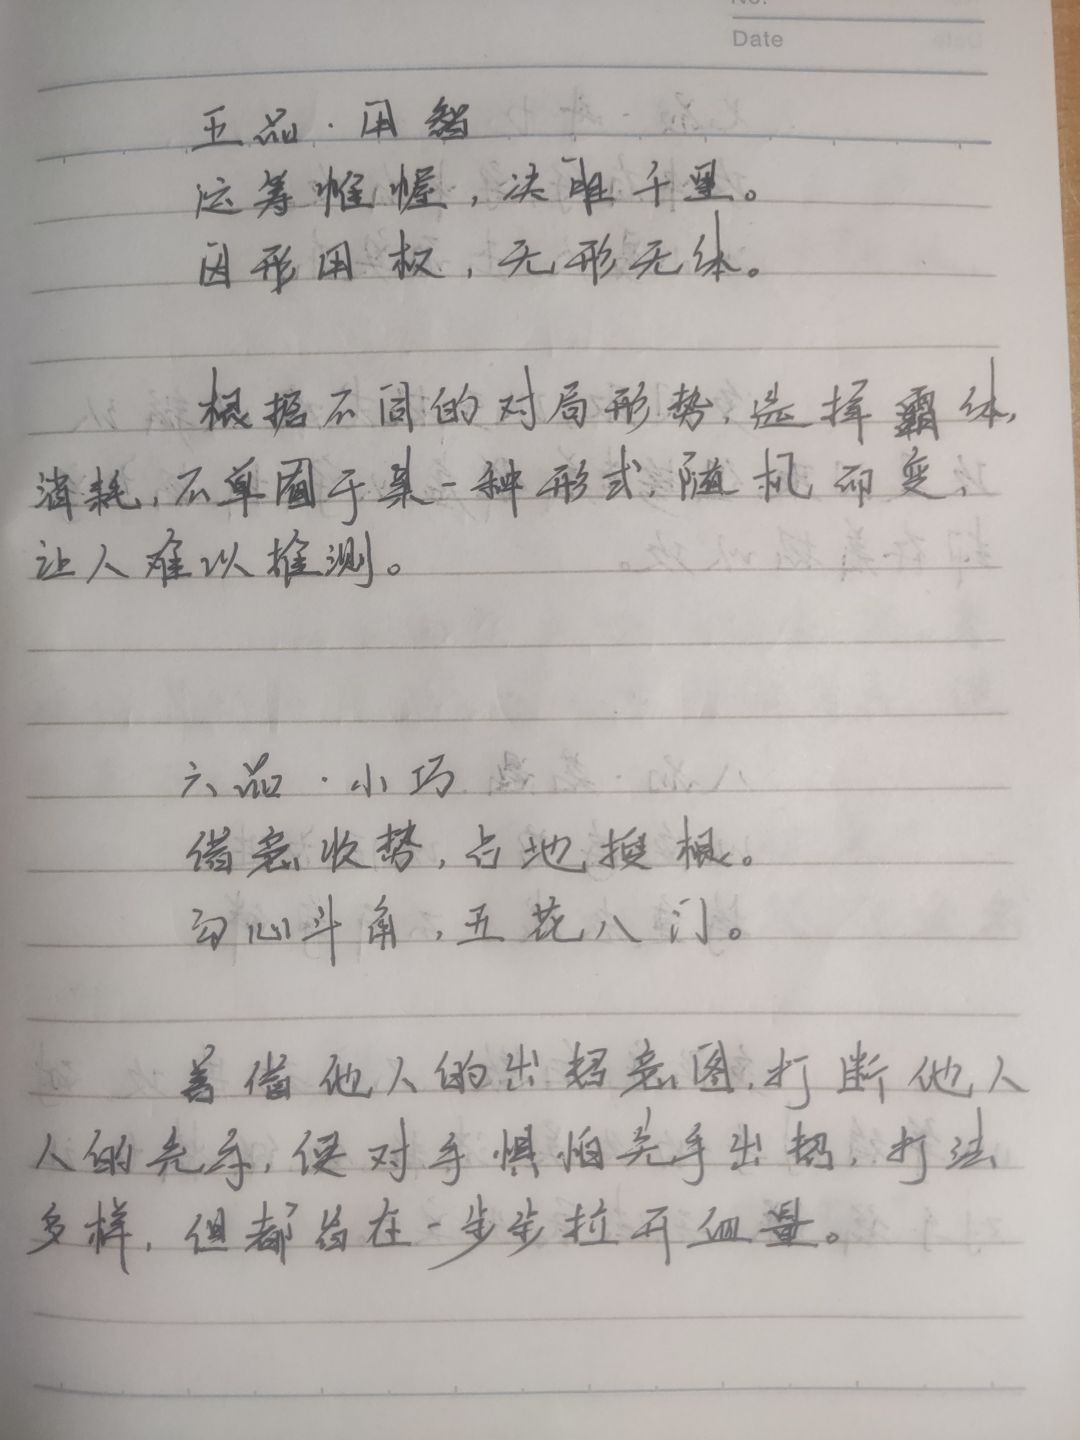 Date
五品·用智
运筹帷幄，决胜千里。
因形用权，无形无体。
根据不同的对局形势，选择霸体，
消耗，不单囿于某一种形式，随机而变，
让人难以推测。
六品·小巧
借意收势，占地搜根。
勾心斗角，五花八门。
善借他人的出招意图，打断他人
人的先手，使对手惧怕先手出招，打法
多样，但都旨在一步步拉开血量。